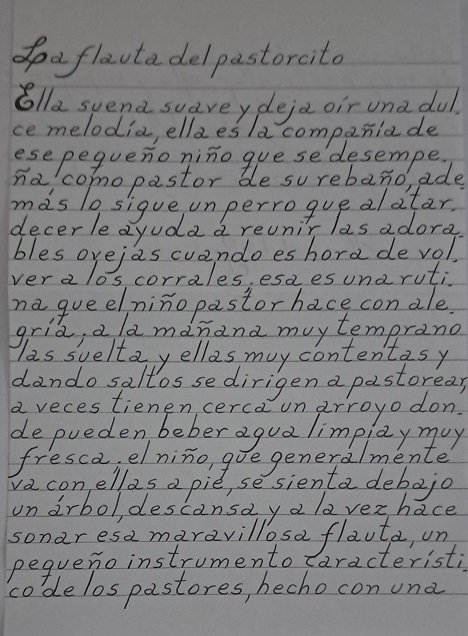 La flauta del pastorcito
Ella suena suave y deja oír una dul.
ce melodía, ella es la compañía de
ese pequeño niño que se desempe.
ña como pastor de su rebaño, ade.
más lo sigue un perro que al atar.
decer le ayuda a reunir las adora.
bles ovejas cuando es hora de vol.
ver a los corrales, esa es una ruti.
na que el niño pastor hace con ale.
gría, a la mañana muy temprano
las suelta y ellas muy contentas y
dando saltos se dirigen a pastorear,
a veces tienen cerca un arroyo don.
de pueden beber agua limpia y muy
fresca, el niño, que generalmente
va con ellas a pie, se sienta debajo
un árbol, descansa y a la vez hace
sonar esa maravillosa flauta, un
pequeño instrumento característi.
co de los pastores, hecho con una